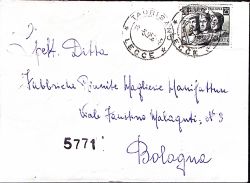 TAURISANO
LECCE
Spett. Ditta
Fabbriche Riunite Magliere Manifatture
Viale Faustino Malaguti, N° 3
5771
Bologna